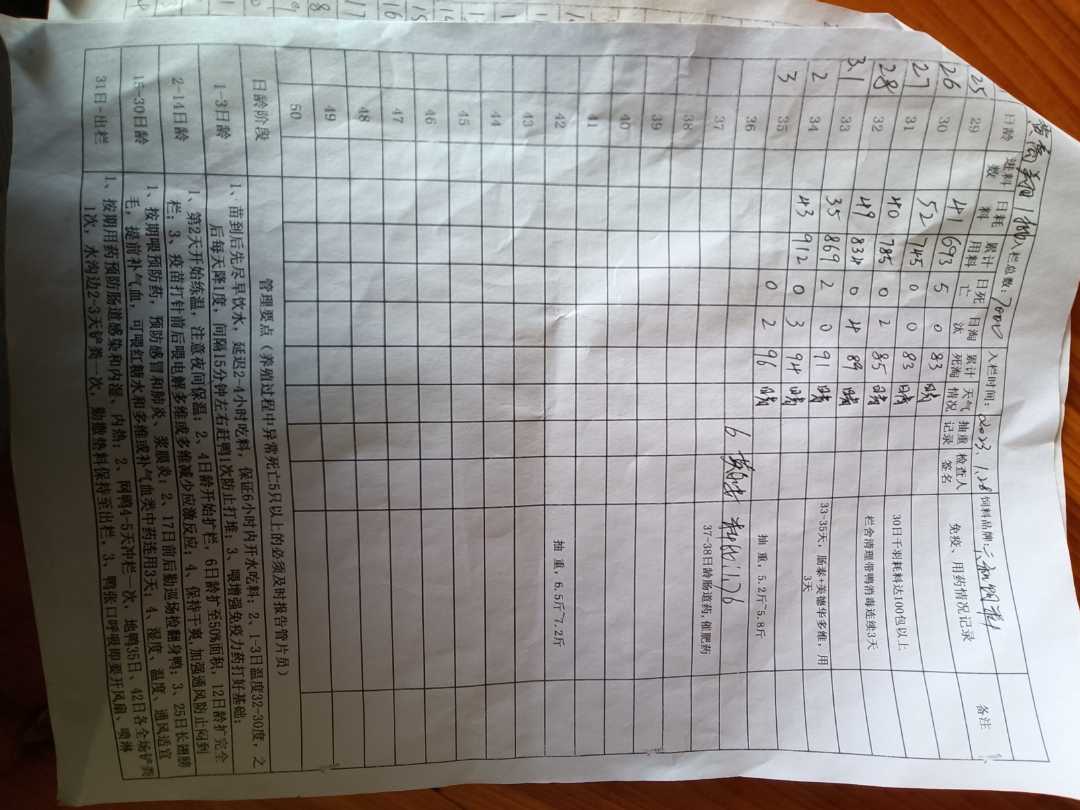 入栏总数:7000 入栏时间:2023.1.28 饲料品牌:六和饲料
日龄 进料数 日耗料 累计用料 日死亡 日淘汰 累计死淘 天气情况 抽重记录 检查人签名 免疫、用药情况记录 备注
25 29 41 693 5 0 83 晴
26 30 52 745 0 0 83 晴 30日千羽耗料达100包以上
27 31 40 785 0 2 85 晴 栏舍清理带鸭消毒连续3天
28 32 49 834 0 4 89 晴
3.1 33 35 869 2 0 91 晴 33-35天,肠泰+美德华多维,用3天
2 34 43 912 0 3 94 晴
3 35 0 2 96 晴 抽重,5.2斤~5.8斤
36 6 料比:1.76
37 37-38日龄肠道药,催肥药
38
39
40
41
42 抽重,6.5斤~7.2斤
43
44
45
46
47
48
49
50
日龄阶段 管理要点(养殖过程中异常死亡5只以上的必须及时报告管片员)
1-3日龄 1、苗到后先尽早饮水,延迟2-4小时吃料,保证6小时内开水吃料;2、1-3日温度32-30度,之
后每天降1度,间隔15分钟左右赶鸭1次防止打堆;3、喂增强免疫力药打好基础;
2-14日龄 1、第2天开始练温,注意夜间保温;2、4日龄开始扩栏,6日龄扩至50%面积,12日龄扩完全
栏;3、疫苗打针前后喂电解多维或多维减少应激反应;4、保持干爽,加强通风防止闷到
15-30日龄 1、按期喂预防药,预防感冒和肺炎、浆膜炎;2、17日前后勤巡场捡翻身鸭;3、25日长翅膀
毛,提前补气血,可喂红糖水和多维或补气血类中药连用3天;4、湿度、温度、通风适宜
31日-出栏 1、按期用药预防肠道感染和内湿、内热;2、网鸭4-5天冲栏一次,地鸭35日、42日各全场铲粪
1次,水沟边2-3天铲粪一次,勤撒垫料保持至出栏。3、鸭张口呼吸即要开风扇、喷淋